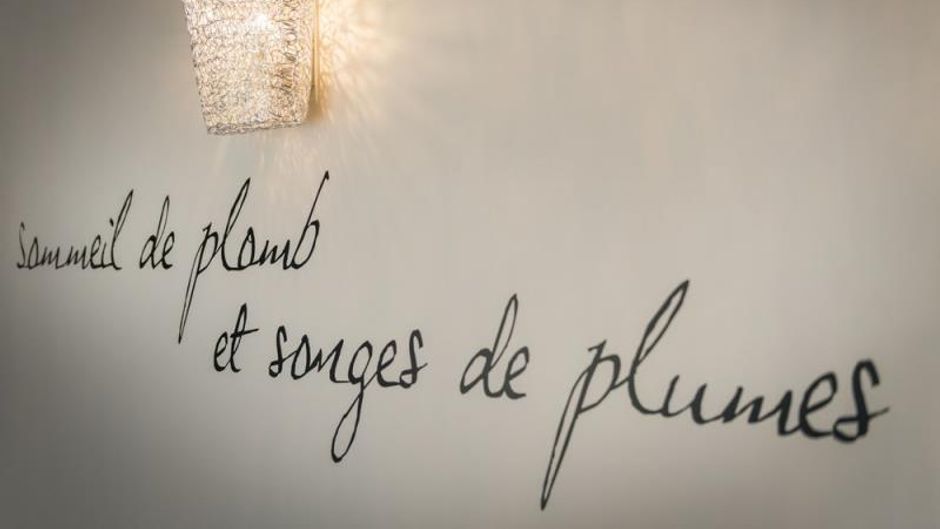 sommeil de plomb
et songes de plumes